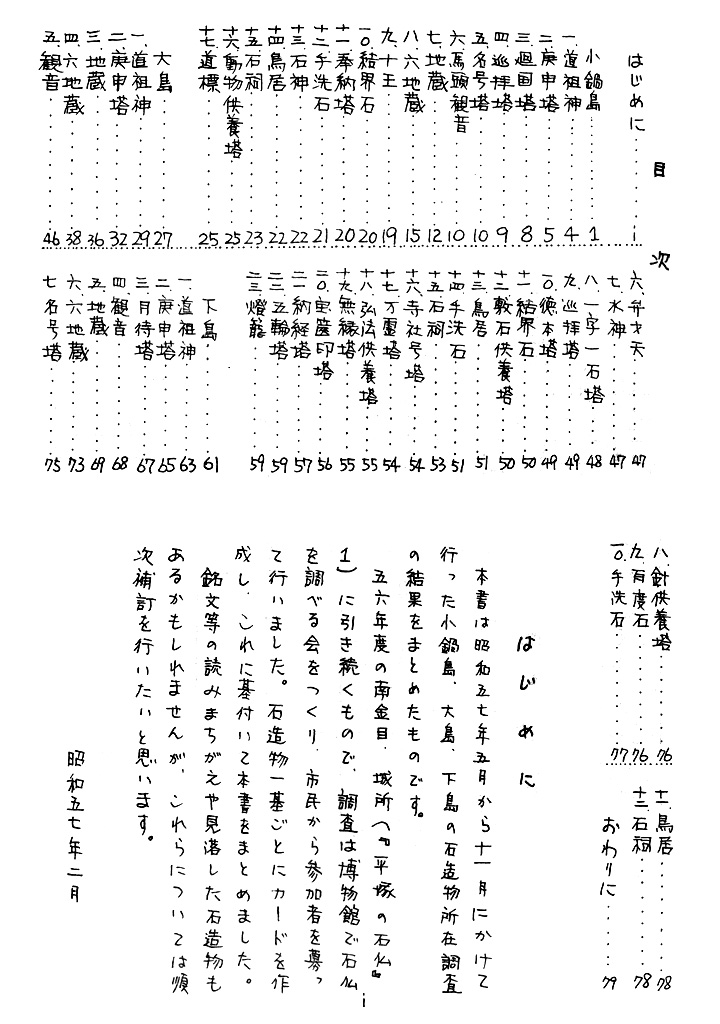 目次
はじめに……i
小鍋島……1
一.道祖神……4
二.庚申塔……5
三.廻国塔……8
四.巡拝塔……9
五.名号塔……10
六.馬頭観音……10
七.地蔵……12
八.六地蔵……15
九.十王……19
一〇.結界石……20
十一.奉納塔……20
十二.手洗石……21
十三.石神……22
十四.鳥居……22
十五.石祠……23
十六.動物供養塔……25
十七.道標……25
大島……27
一.道祖神……29
二.庚申塔……32
三.地蔵……36
四.六地蔵……38
五.観音……46
六.弁才天……47
七.水神……47
八.一字一石塔……48
九.巡拝塔……49
一〇.徳本塔……49
十一.結界石……50
十二.敷石供養塔……50
十三.鳥居……51
十四.手洗石……51
十五.石祠……53
十六.寺社号塔……54
十七.万霊塔……54
十八.弘法供養塔……55
十九.無縁塔……55
二〇.宝篋印塔……56
二一.納経塔……57
二二.五輪塔……59
二三.燈籠……59
下島……61
一.道祖神……63
二.庚申塔……65
三.月待塔……67
四.観音……68
五.地蔵……69
六.六地蔵……73
七.名号塔……75
八.針供養塔……76
九.百度石……76
一〇.手洗石……77
十一.鳥居……78
十二.石祠……78
おわりに……79
はじめに
本書は昭和五七年五月から十一月にかけて
行った小鍋島、大島、下島の石造物所在調査
の結果をまとめたものです。
五六年度の南金目、城所へ『平塚の石仏』
1)に引き続くもので、調査は博物館で石仏
を調べる会をつくり、市民から参加者を募っ
て行いました。石造物一基ごとにカードを作
成し、これに基付いて本書をまとめました。
銘文等の読みまちがえや見落した石造物も
あるかもしれませんが、これらについては順
次補訂を行いたいと思います。
昭和五七年二月
i